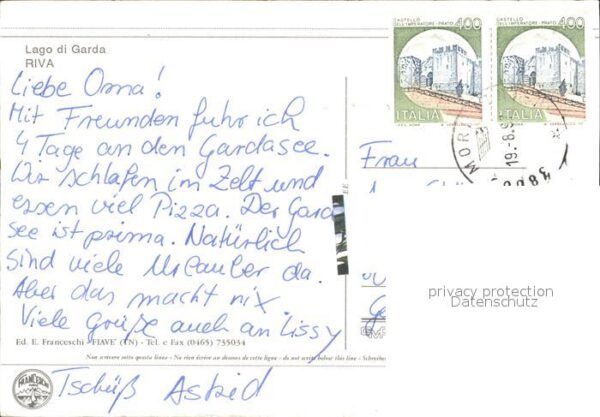 Lago di Garda
RIVA
Liebe Oma!
Mit Freunden fuhr ich
4 Tage an den Gardasee.
Wir schlafen im Zelt und
essen viel Pizza. Der Garda
see ist prima. Natürlich
sind viele Urlauber da.
Aber das macht nix.
Viele Grüße auch an Lissy
Tschüß Astrid
Ed. E. Franceschi - FIAVE' (TN) - Tel. e Fax (0465) 735034
Non scrivere sotto questa linea - Ne rien écrire au dessous de cette ligne - do not write below this line - Schreiben
FRANCESCHI
CASTELLO
DELL'IMPERATORE - PRATO
400
ITALIA
CASTELLO
DELL'IMPERATORE - PRATO
400
ITALIA
MORI
19.-8.9
380
Frau
privacy protection
Datenschutz